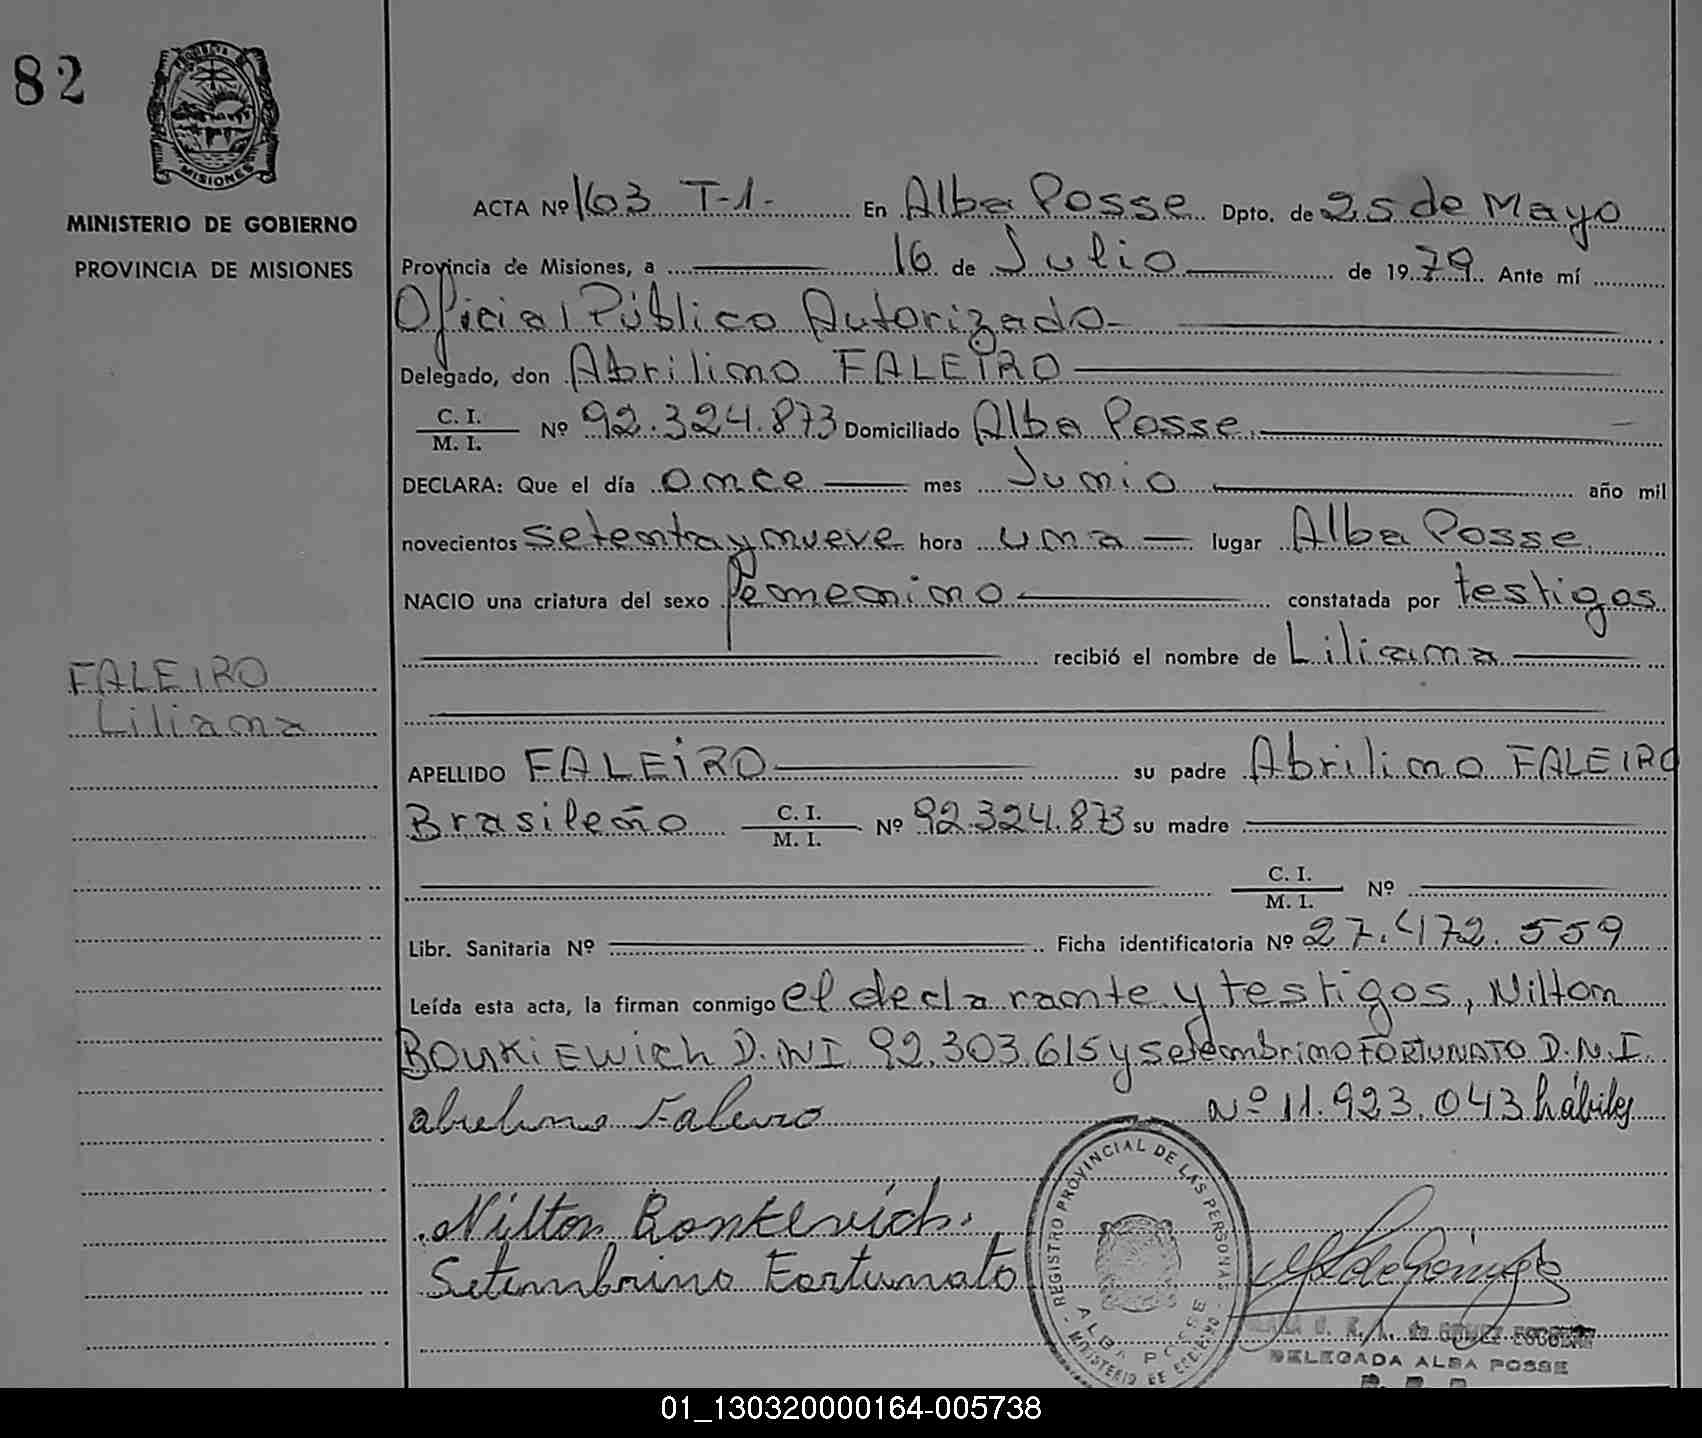 82
PROVINCIA DE
MISIONES
MINISTERIO DE GOBIERNO
PROVINCIA DE MISIONES
FALEIRO
Liliana
ACTA Nº 163 T-1- En Alba Posse Dpto. de 25 de Mayo
Provincia de Misiones, a 16 de Julio de 1979 Ante mí
Oficial Público Autorizado-
Delegado, don Abrilino FALEIRO
C. I.
M. I.
Nº 92.324.873 Domiciliado Alba Posse.
DECLARA: Que el día once mes Junio año mil
novecientos setenta y nueve hora una lugar Alba Posse
NACIO una criatura del sexo femenino constatada por testigos
recibió el nombre de Liliana
APELLIDO FALEIRO su padre Abrilino FALEIRO
Brasileño C. I. M. I. Nº 92.324.873 su madre
C. I. M. I. Nº
Libr. Sanitaria Nº Ficha identificatoria Nº 27.472.559
Leída esta acta, la firman conmigo el declarante y testigos, Nilton
BOUKiEWich D.NI. 92.303.615 y Setembrino FORTUNATO D.N.I.
Nº 11.923.043 hábiles
abrelino Faleiro
Nilton Bonkevich.
Setembrino Fortunato
REGISTRO PROVINCIAL DE LAS PERSONAS
ALBA POSSE
MINISTERIO DE GOBIERNO
DELEGADA ALBA POSSE
01_130320000164-005738